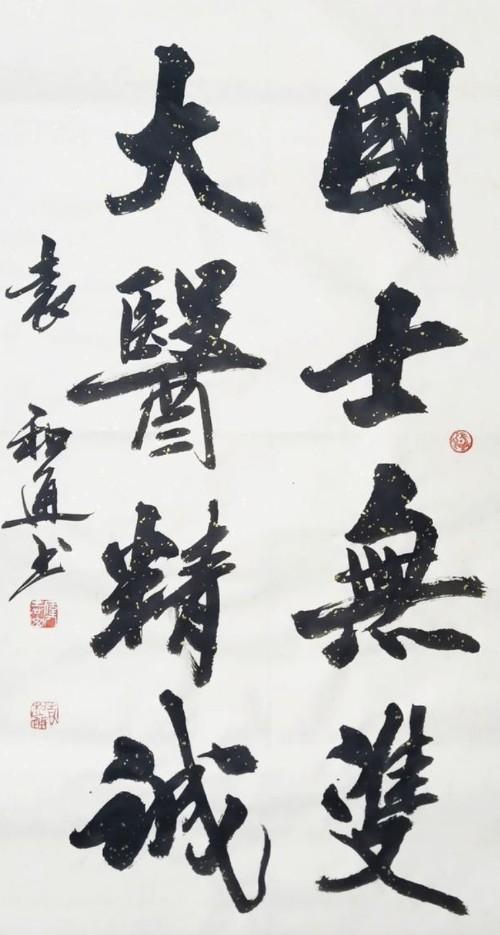 國士無雙
大醫精誠
袁和通书